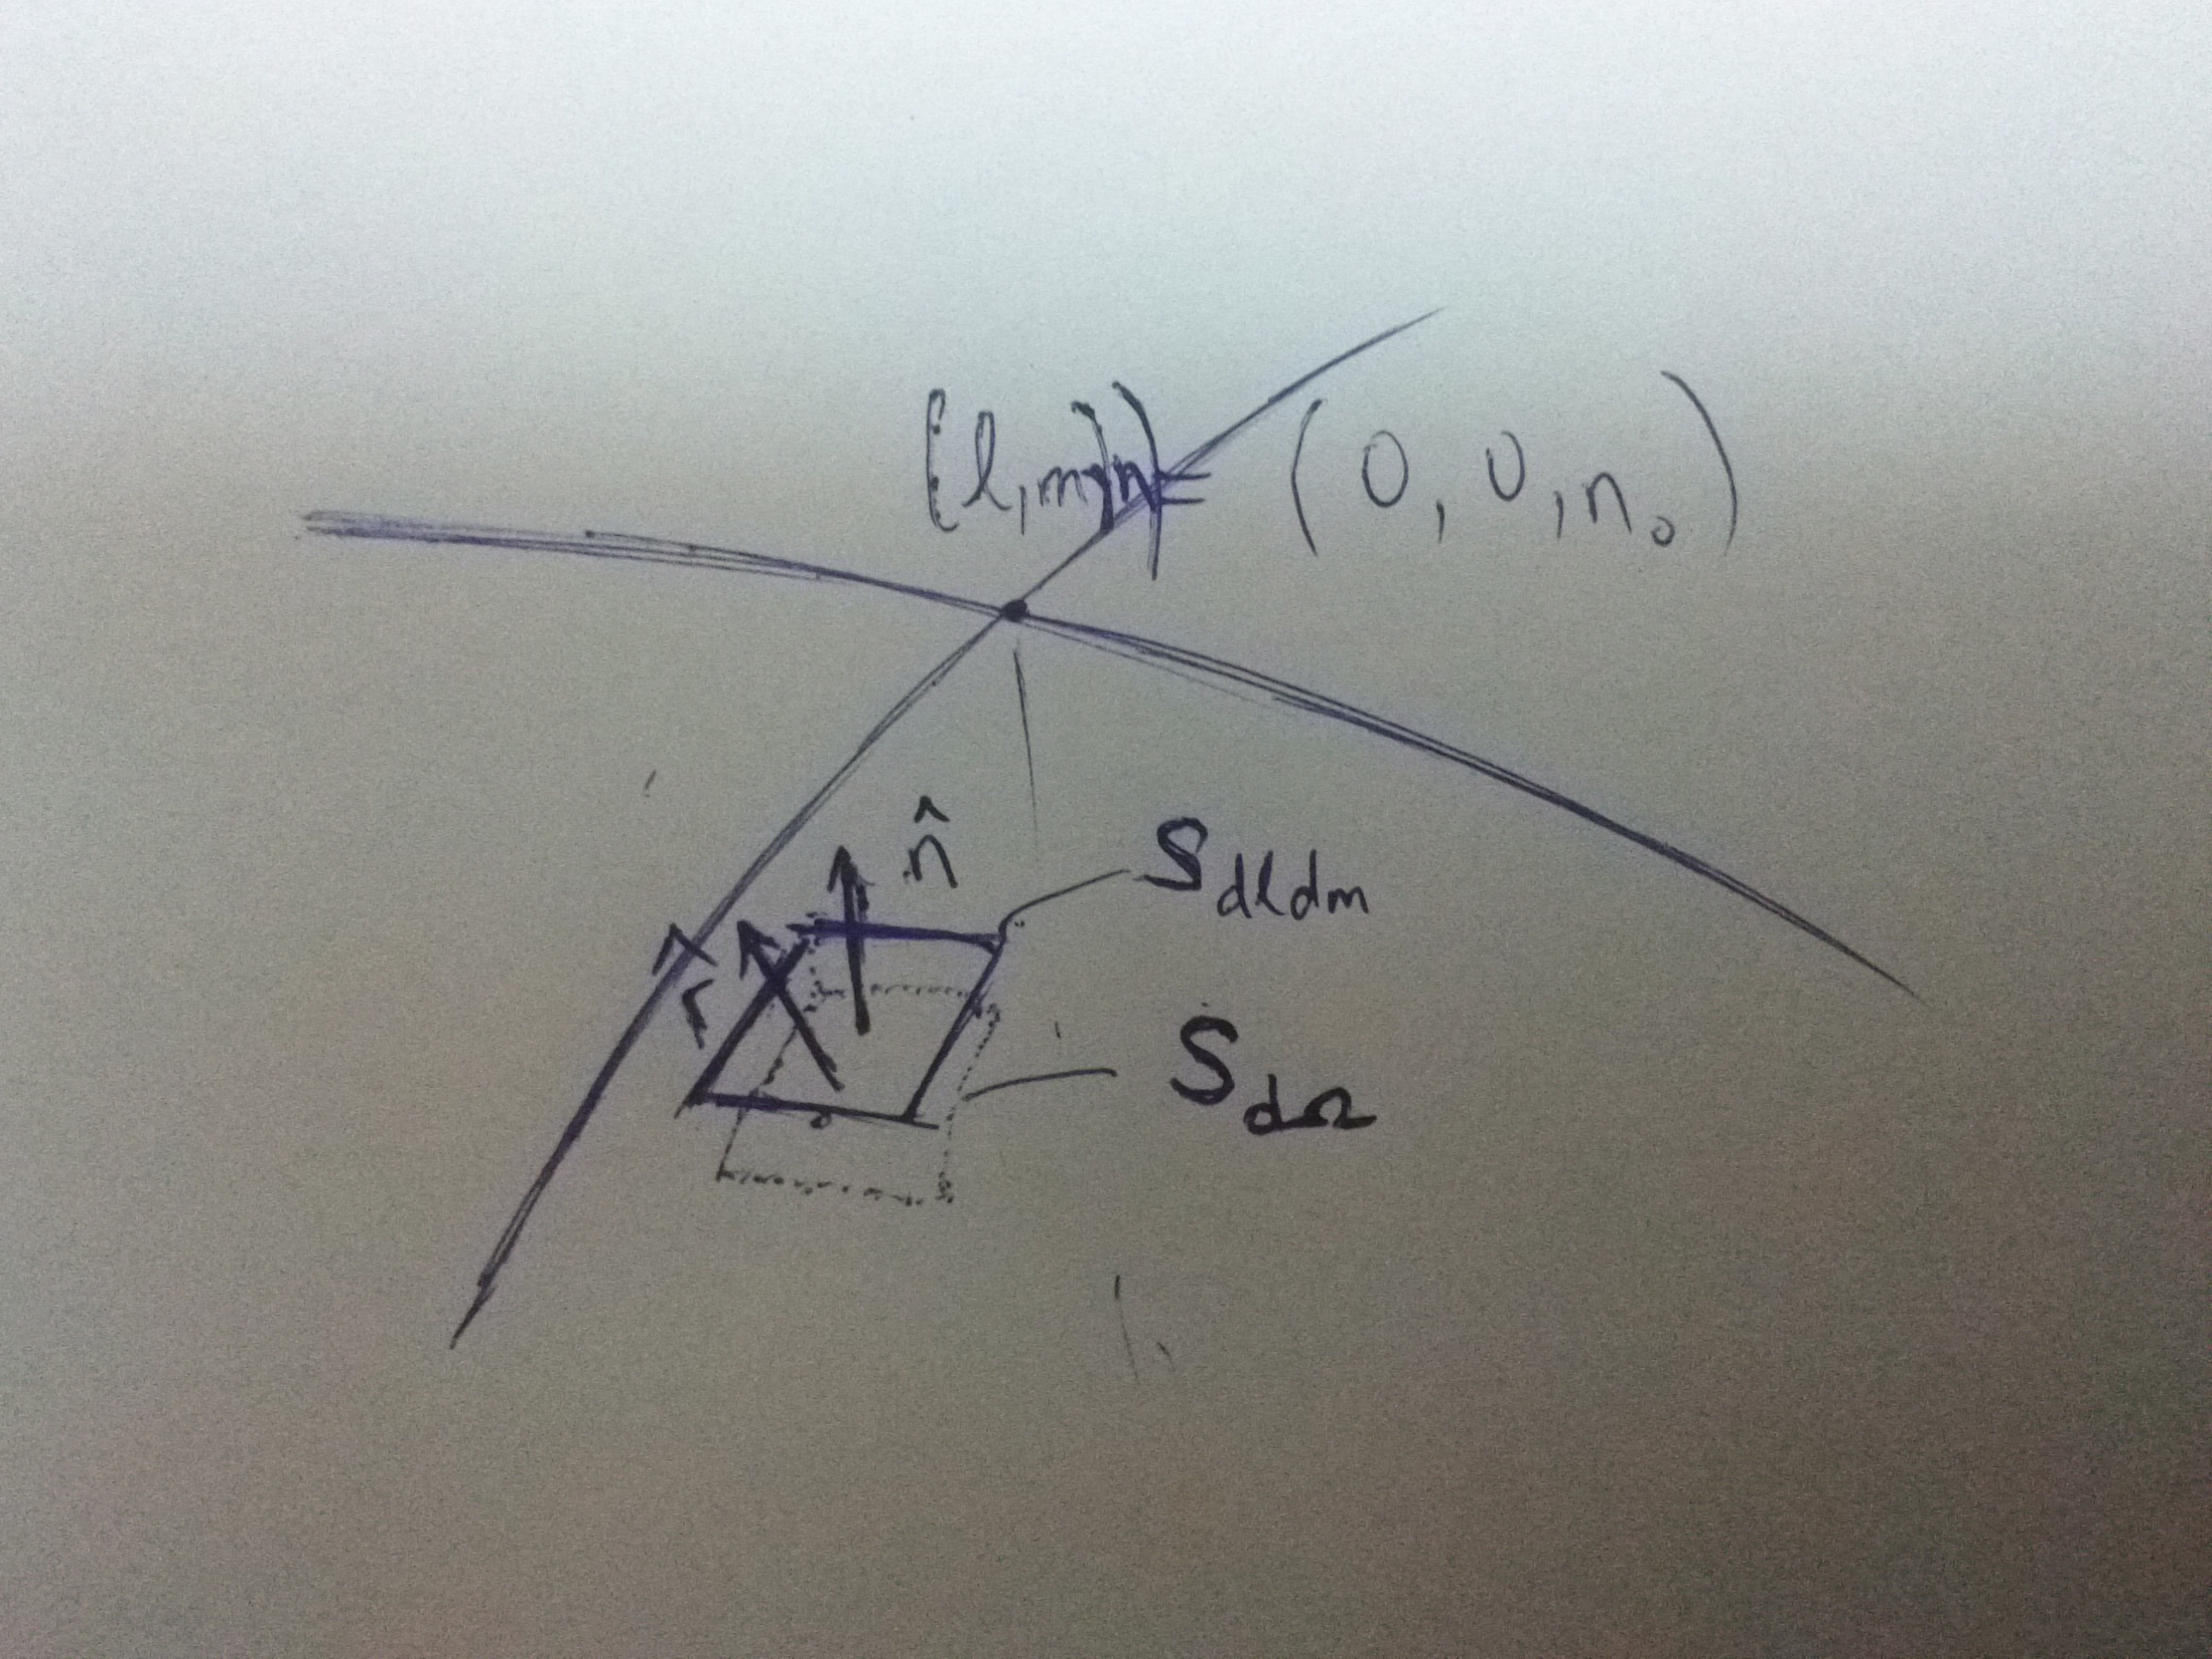 (l,m,n) = (0,0,n₀)
n̂
S dldm
r̂
S dΩ